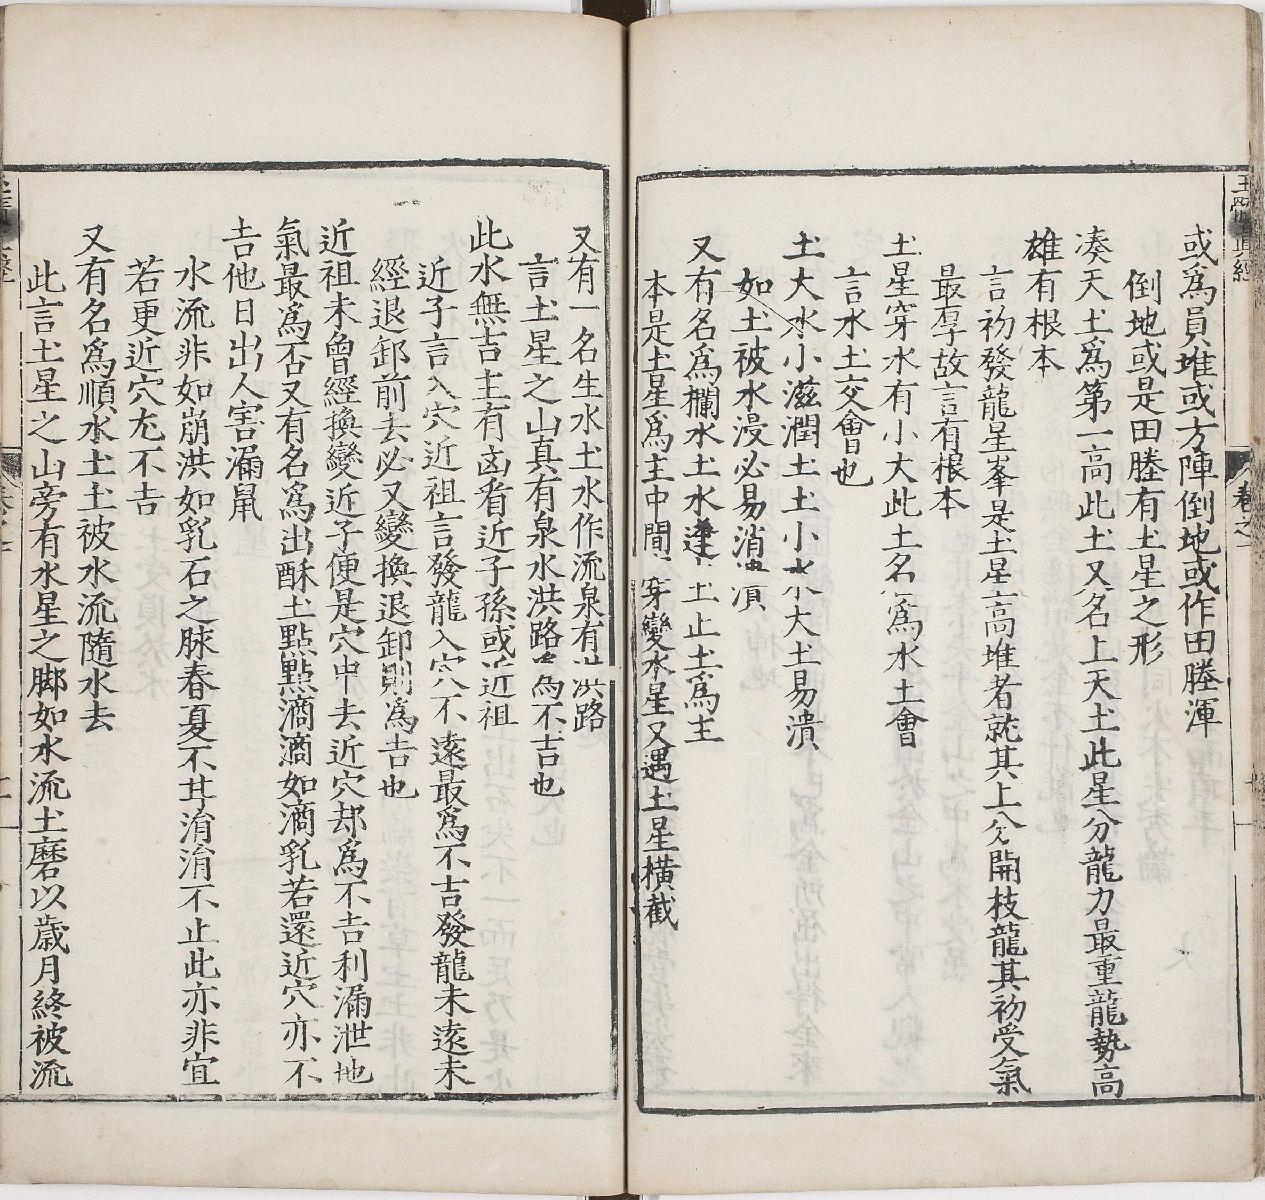 或爲員堆或方陣倒地或作田塍渾
倒地或是田塍有土星之形
湊天土爲第一高此土又名上天土此星分龍力最重龍勢高
雄有根本
言初發龍星峯是土星高堆者就其上分開枝龍其初受氣
最厚故言有根本
土星穿水有小大此土名爲水土會
言水土交會也
土大水小滋潤土土小水大土易潰
如土被水漫必易消潰
又有名爲攔水土水逢土止土爲主
本是土星爲主中間穿變水星又遇土星橫截
又有一名生水土水作流泉有洪路
言土星之山真有泉水洪路爲不吉也
此水無吉主有凶看近子孫或近祖
近子言入穴近祖言發龍入穴不遠最爲不吉發龍未遠未
經退卸前去必又變換退卸則爲吉也
近祖未曾經換變近子便是穴中去近穴却爲不吉利漏泄地
氣最爲否又有名爲出酥土點點滴滴如滴乳若還近穴亦不
吉他日出人害漏鼠
水流非如崩洪如乳石之脉春夏不其涓涓不止此亦非宜
若更近穴尤不吉
又有名爲順水土土被水流隨水去
此言土星之山旁有水星之脚如水流土磨以歲月終被流
卷之一